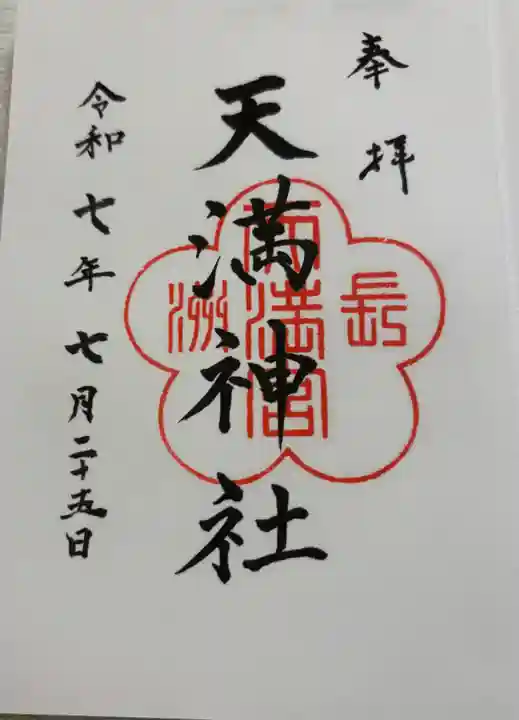 奉拝
長
天満宮
洲
天満神社
令和七年七月二十五日